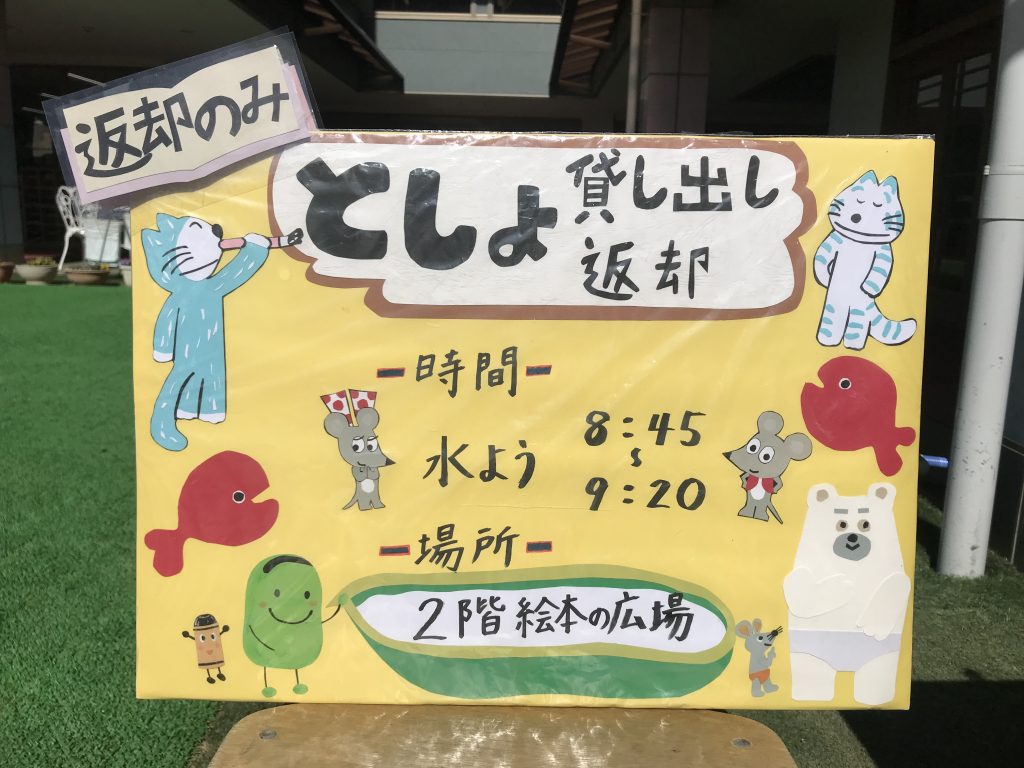 返却のみ
としょ 貸し出し
返却
ー時間ー
水よう 8:45
〜
9:20
ー場所ー
2階 絵本の広場